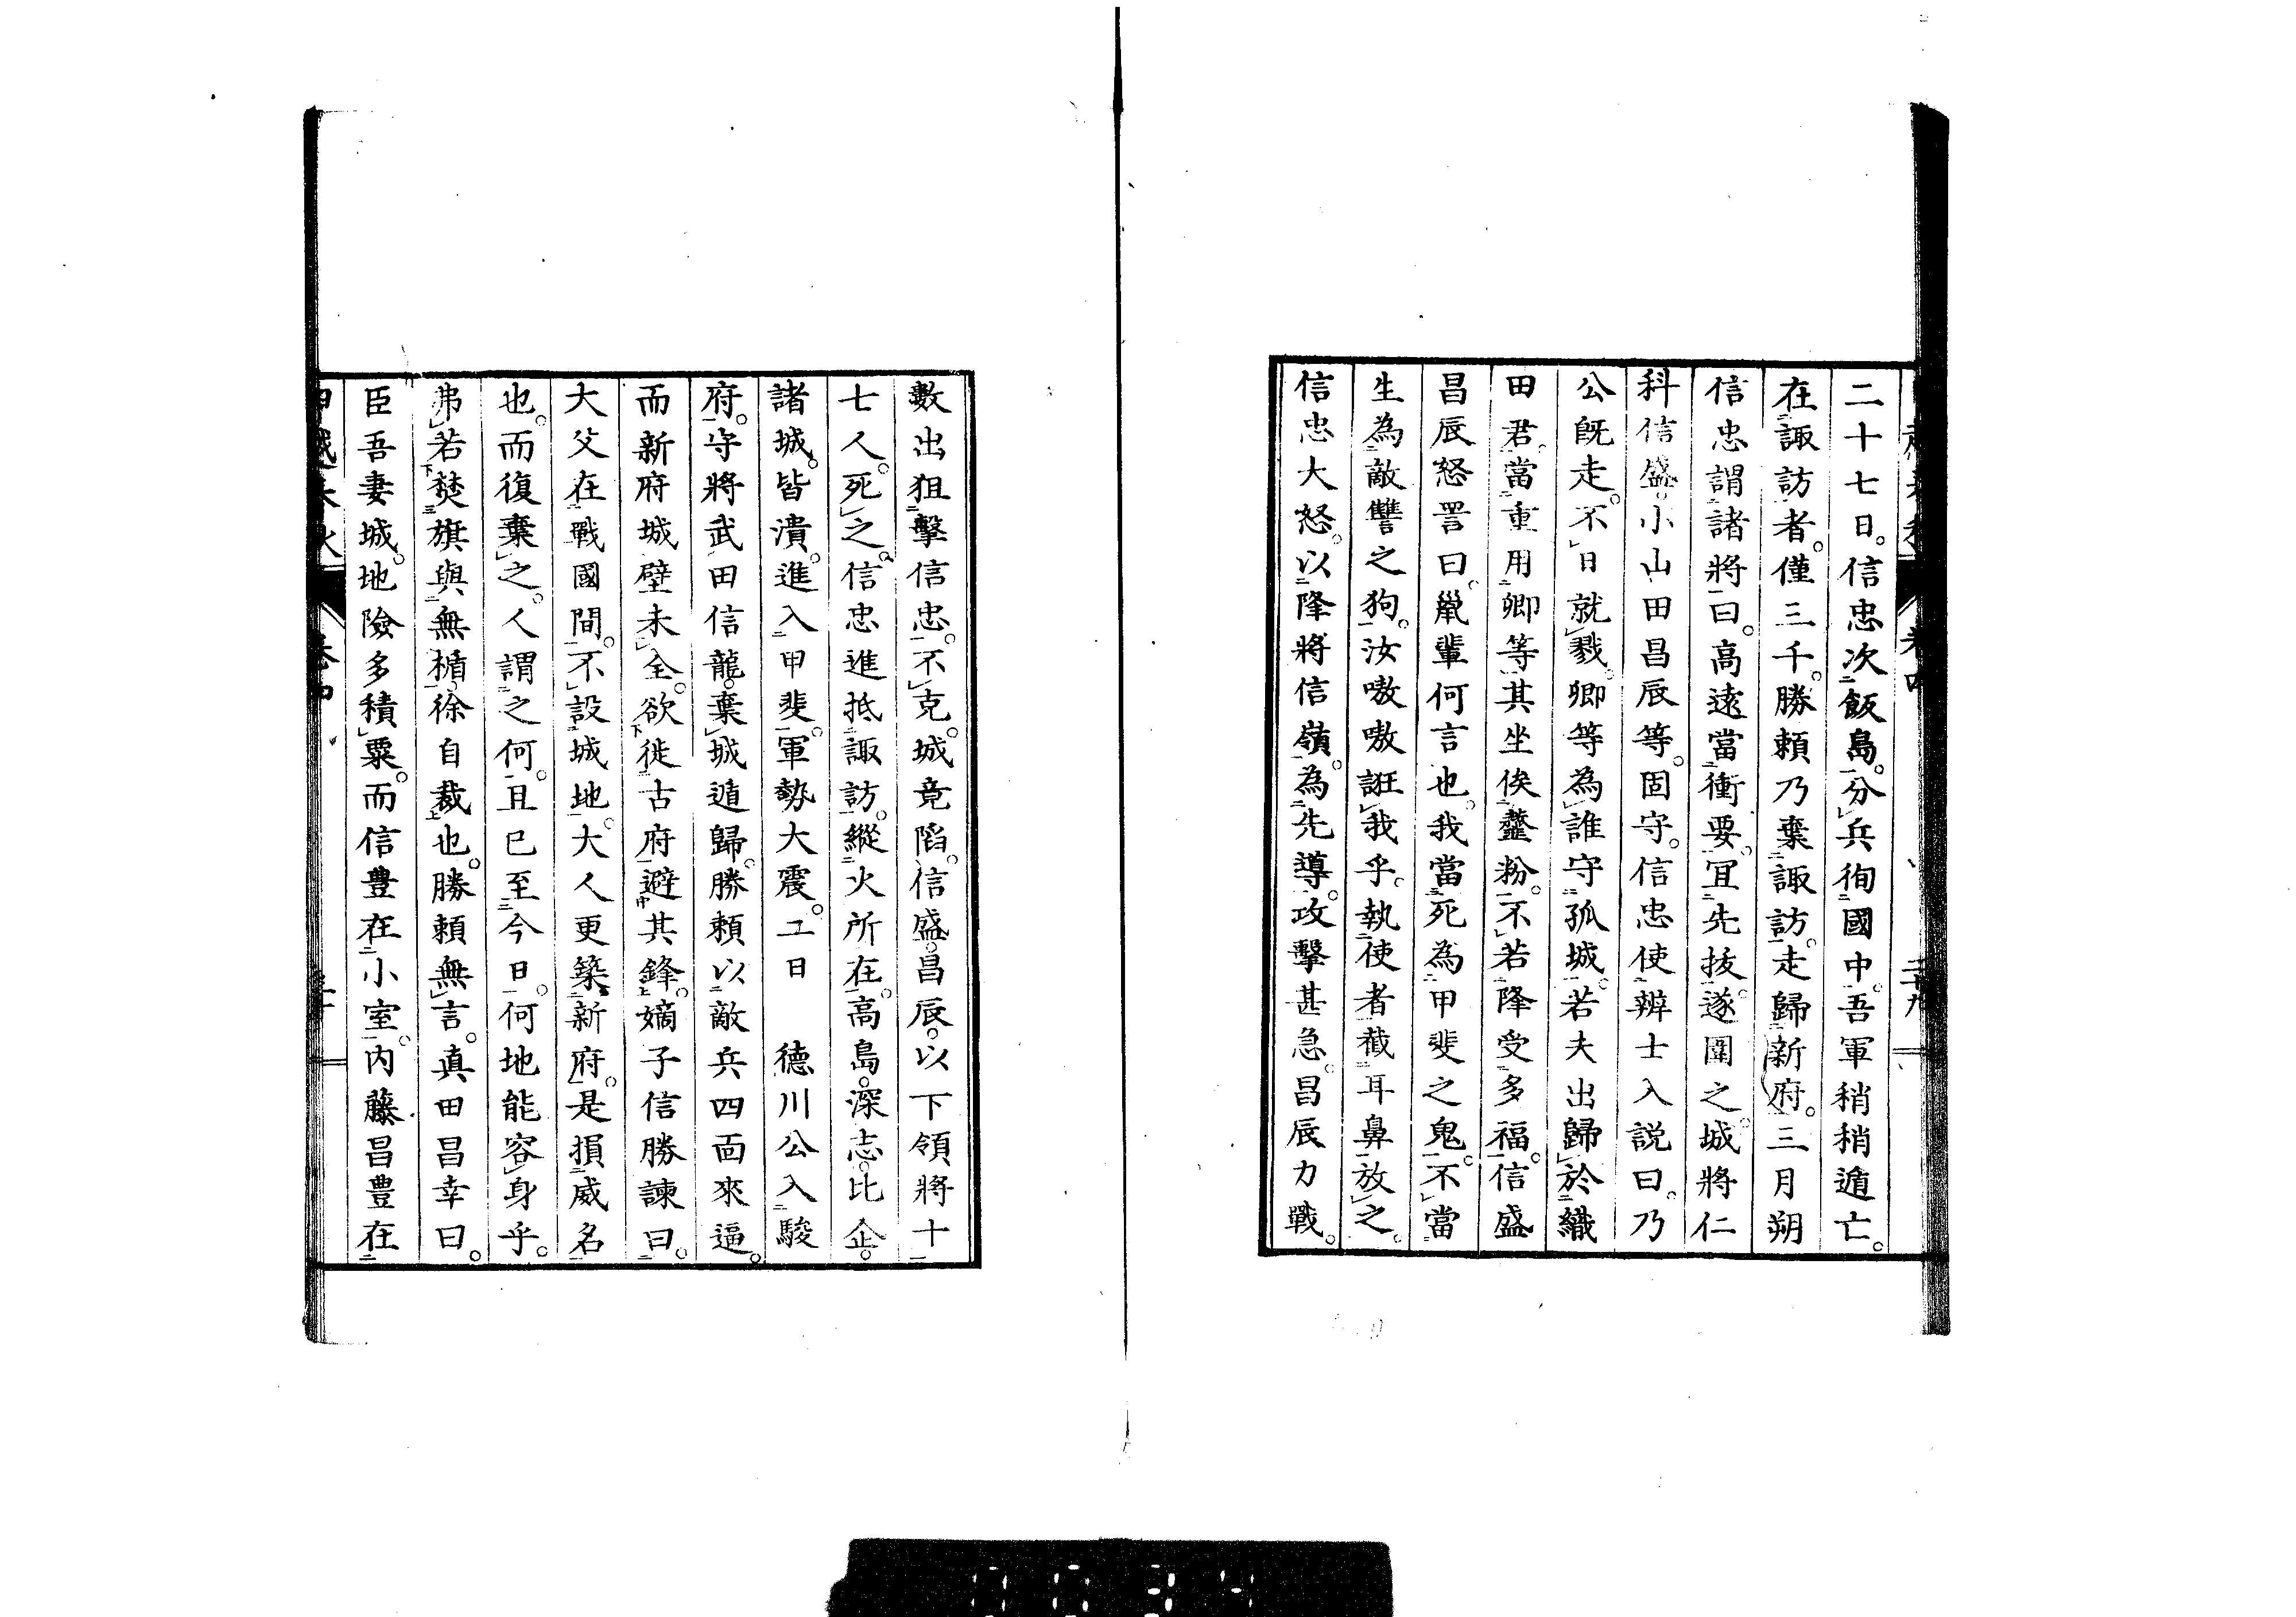 二十七日。信忠次飯島。分兵徇國中。吾軍稍稍遁亡。
在諏訪者。僅三千。勝頼乃棄諏訪。走歸新府。三月朔
信忠謂諸將曰。高遠當衝要。宜先拔。遂圍之。城將仁
科信盛。小山田昌辰等。固守。信忠使辨士入説曰。乃
公既走。不日就戮。卿等為誰守孤城。若夫出歸於織
田君。當重用卿等。其坐俟虀粉。不若降受多福。信盛
昌辰怒詈曰。鼠輩何言也。我當死為甲斐之鬼。不當
生為敵讐之狗。汝嗷嗷誑我乎。執使者。截耳鼻放之。
信忠大怒。以降將信嶺。為先導。攻擊甚急。昌辰力戰。
數出狙擊信忠。不克。城竟陷。信盛。昌辰。以下領將十
七人。死之。信忠進抵諏訪。縱火所在。高島。深志。比企。
諸城。皆潰。進入甲斐。軍勢大震。工日 德川公入駿
府。守將武田信龍。棄城遁歸。勝頼以敵兵四面來逼。
而新府城壁未全。欲徙古府避其鋒。嫡子信勝諫曰。
大父在戰國間。不設城地。大人更築新府。是損威名
也。而復棄之。人謂之何。且已至今日。何地能容身乎。
弗若焚旗與無楯。徐自裁也。勝頼無言。真田昌幸曰。
臣吾妻城。地險多積粟。而信豊在小室。内藤昌豊在